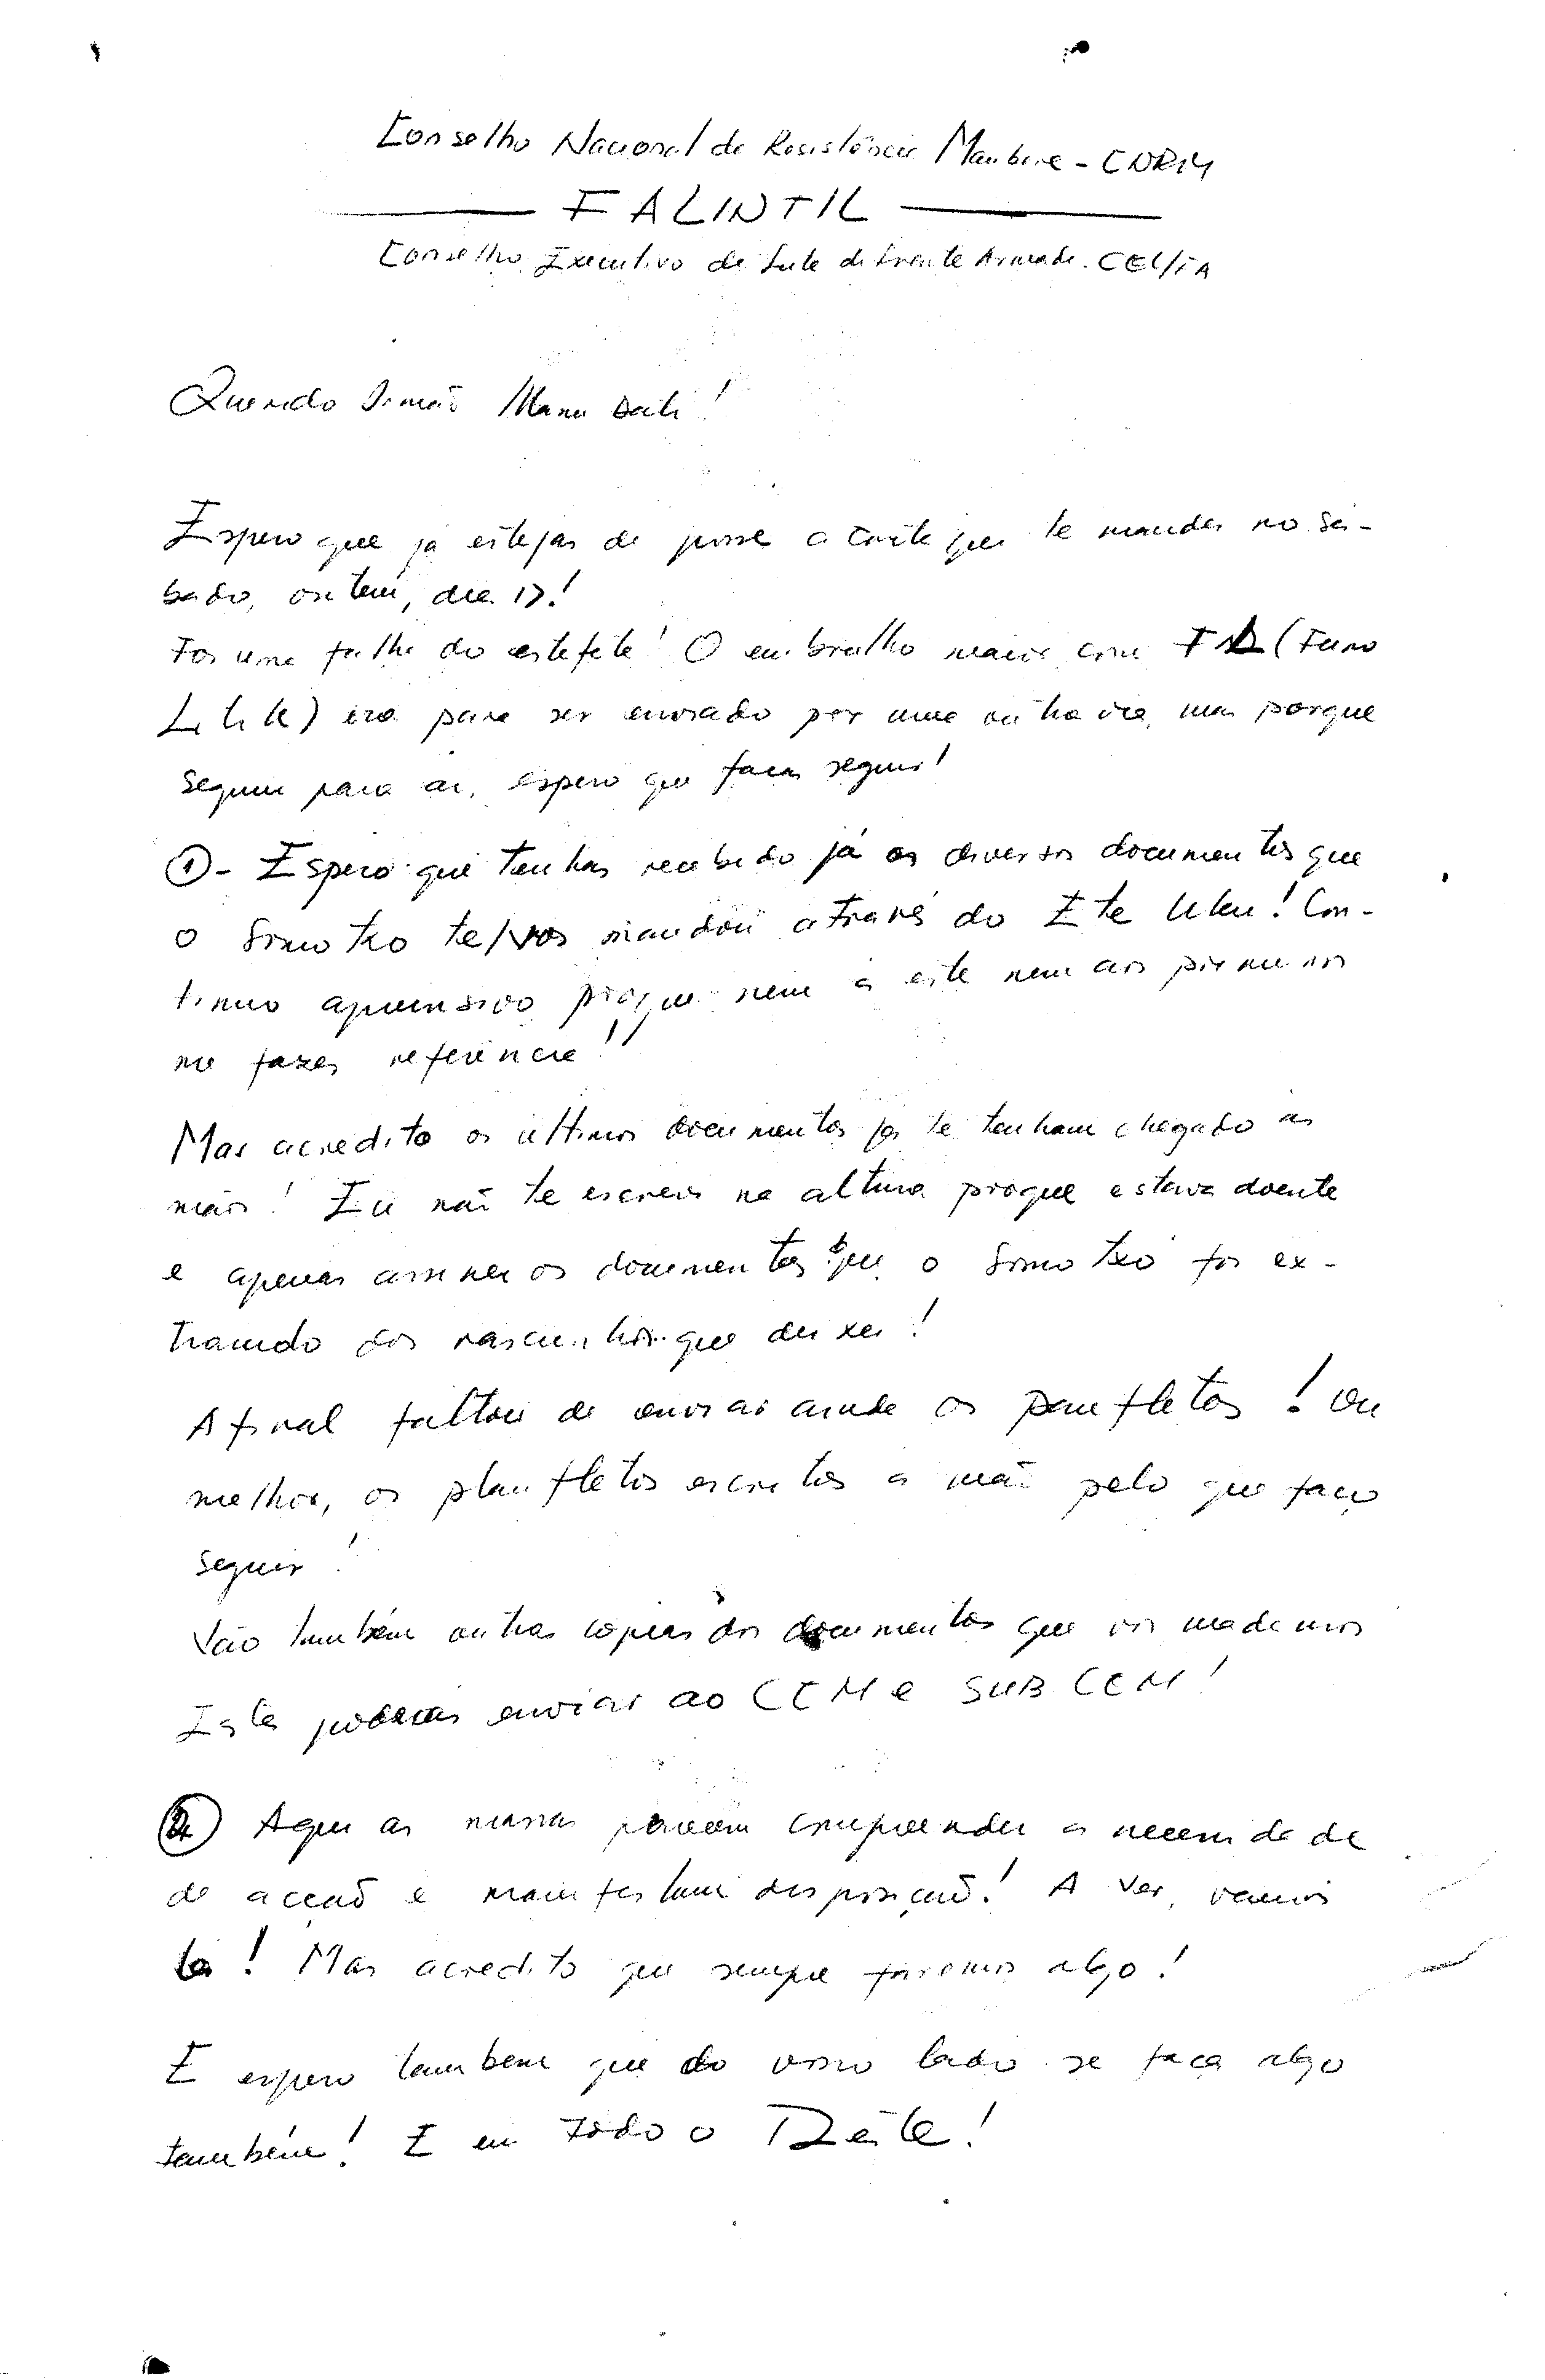 Conselho Nacional da Resistência Maubere - CNRM
FALINTIL
Conselho Executivo da Luta da Frente Armada. CEL/FA
Querido Irmão Manu Dati!
Espero que já estejas de posse a carta que te mandei no Sá-
bado, ontem, dia 17!
Foi uma falha do estafeta! O embrulho maior com FL (Funo
) era para ser enviado por uma outra via, mas porque
seguiu para aí, espero que faças seguir!
① - Espero que tenhas recebido já os diversos documentos que
o Simo txo te/vos mandou através do Ete Uku! Con-
tinuo apreensivo proque nem a este nem aos primeiros
me fazes referência!!
Mas acredito os últimos documentos já te tenham chegado às
mãos! Eu não te escrevi na altura proque estava doente
e apenas assinei os documentos que o Simo txo foi ex-
traindo dos rascunhos que deixei!
Afinal faltou de enviar ainda os panfletos! Ou
melhor, os planfletos escritos a mão pelo que faço
seguir!
Vão também outras cópias dos documentos que vos mandamos
Estes poderás enviar ao CCM e SUB CCM!
② Aqui as massas parecem compreender a necessidade
de acção e manifestam disposição! A ver, vamos
lá! Mas acredito que sempre faremos algo!
E espero também que do vosso lado se faça algo
também! E em todo o